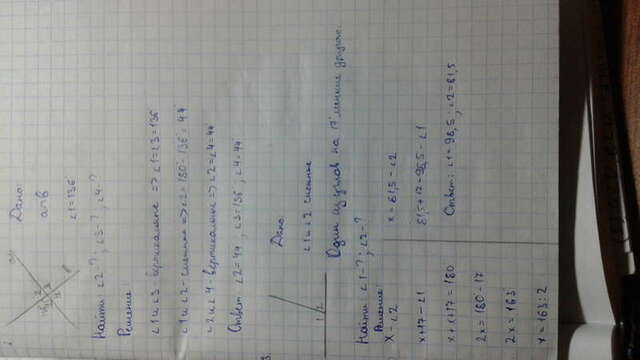 Дано:
a∩b
∠1=136
Найти ∠2-?; ∠3-?; ∠4-?
Решение
∠1 и ∠3 вертикальные => ∠1=∠3=136
∠1 и ∠2 - смежные => ∠2=180-136=44
∠2 и ∠4 вертикальные => ∠2=∠4=44
Ответ ∠2=44, ∠3=136, ∠4=44
3.
Дано
∠1 и ∠2 смежные
Один из углов на 17° меньше другого.
Найти: ∠1-?; ∠2-?
Решение
x - ∠2
x+17 - ∠1
x+x+17=180
2x=180-17
2x=163
x=163:2
x=81,5 - ∠2
81,5+17=98,5 - ∠1
Ответ: ∠1=98,5; ∠2=81,5